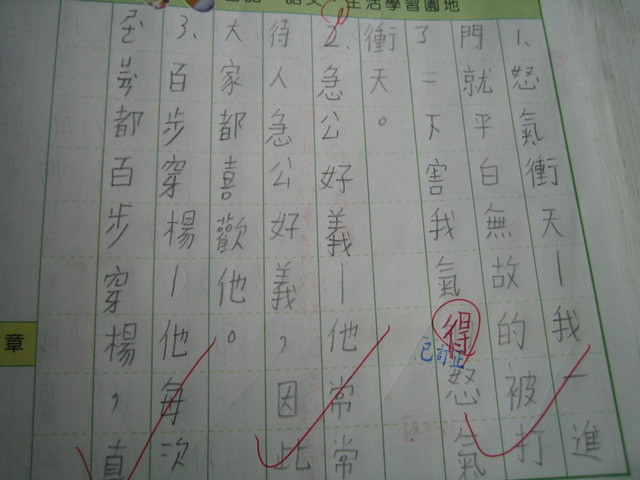 語文 生活學習園地
1、怒氣衝天—我一進
門就平白無故的被打
了二下害我氣得怒氣
已訂正
衝天。
2、急公好義—他常常
待人急公好義，因此
大家都喜歡他。
3、百步穿楊—他每次
都百步穿楊，真
章